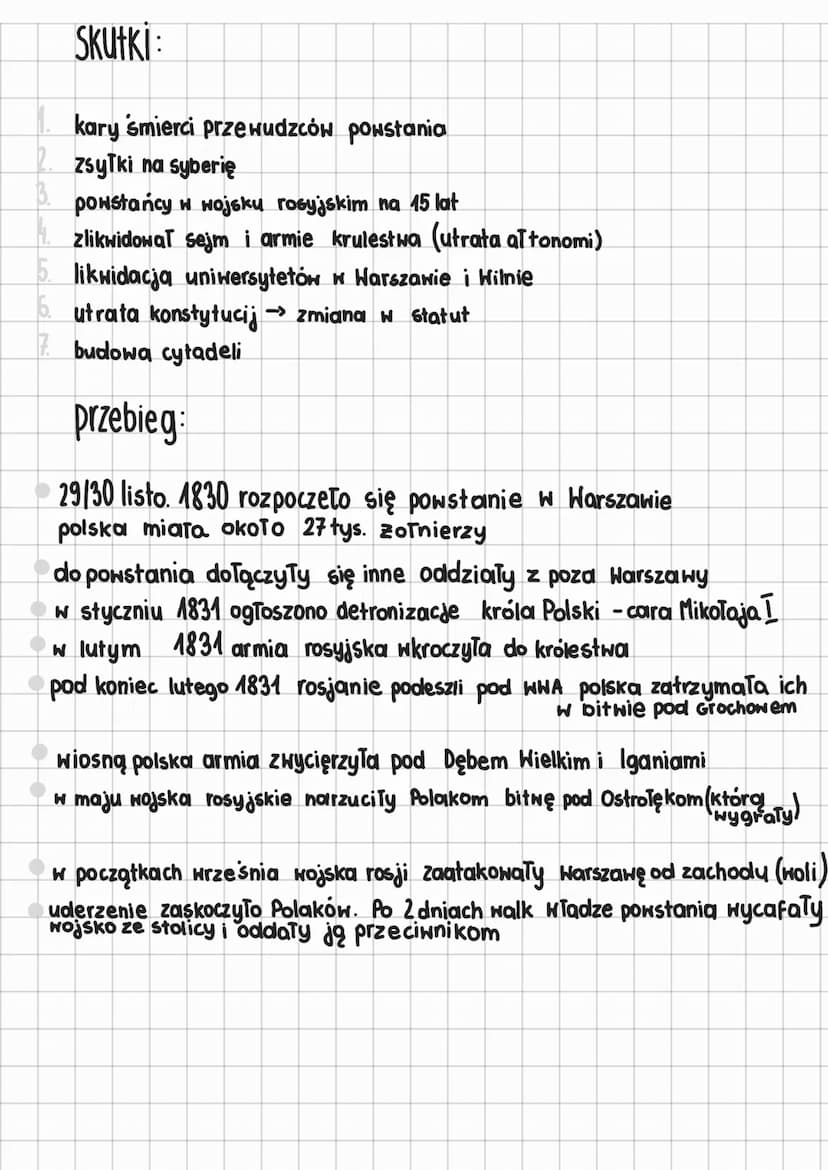 Skutki:
1. kary śmierci przewudzców powstania
2. zsyłki na syberię
3. powstańcy w wojsku rosyjskim na 15 lat
4. zlikwidował sejm i armie krulestwa (utrata ałtonomi)
5. likwidacja uniwersytetów w Warszawie i Wilnie
6. utrata konstytucij → zmiana w statut
7. budowa cytadeli
przebieg:
29/30 listo. 1830 rozpoczeło się powstanie w Warszawie
polska miała około 27 tys. żołnierzy
do powstania dołączyły się inne oddziały z poza Warszawy
w styczniu 1831 ogłoszono detronizacje króla Polski - cara Mikołaja I
w lutym 1831 armia rosyjska wkroczyła do królestwa
pod koniec lutego 1831 rosjanie podeszli pod WWA polska zatrzymała ich
w bitwie pod Grochowem
wiosną polska armia zwyciężyła pod Dębem Wielkim i Iganiami
w maju wojska rosyjskie narzuciły Polakom bitwę pod Ostrołękom (którą
wygrały)
w początkach września wojska rosji zaatakowały Warszawę od zachodu (woli)
uderzenie zaskoczyło Polaków. Po 2 dniach walk władze powstania wycafały
wojsko ze stolicy i oddały ją przeciwnikom